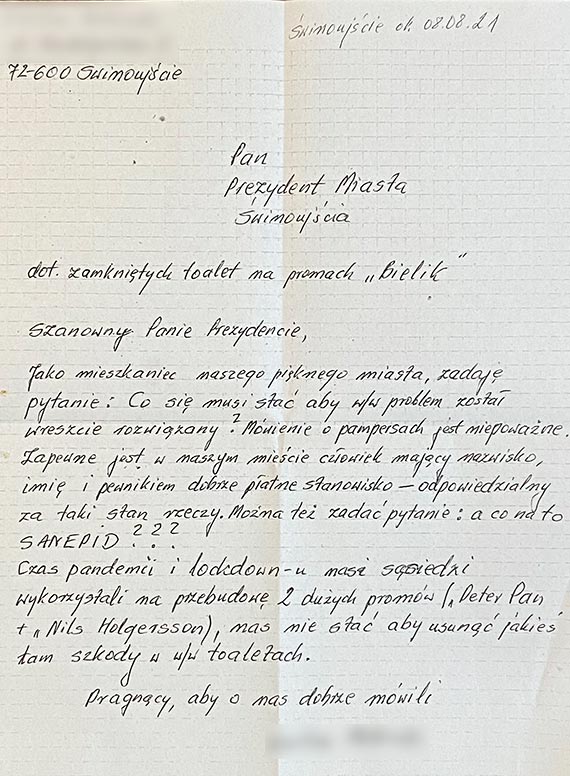 Świnoujście dn. 08.08.21
72-600 Świnoujście
Pan
Prezydent Miasta
Świnoujścia
dot. zamkniętych toalet na promach „Bielik"
Szanowny Panie Prezydencie,
Jako mieszkaniec naszego pięknego miasta, zadaję
pytanie: Co się musi stać aby w/w problem został
wreszcie rozwiązany? Mówienie o pampersach jest niepoważne.
Zapewne jest w naszym mieście człowiek mający nazwisko,
imię i pewnikiem dobrze płatne stanowisko – odpowiedzialny
za taki stan rzeczy. Można też zadać pytanie: a co na to
SANEPID ???
Czas pandemii i lockdown-u nasi sąsiedzi
wykorzystali na przebudowę 2 dużych promów („Peter Pan
+ „Nils Holgersson), nas nie stać aby usunąć jakieś
tam szkody w w/w toaletach.
Pragnący, aby o nas dobrze mówili